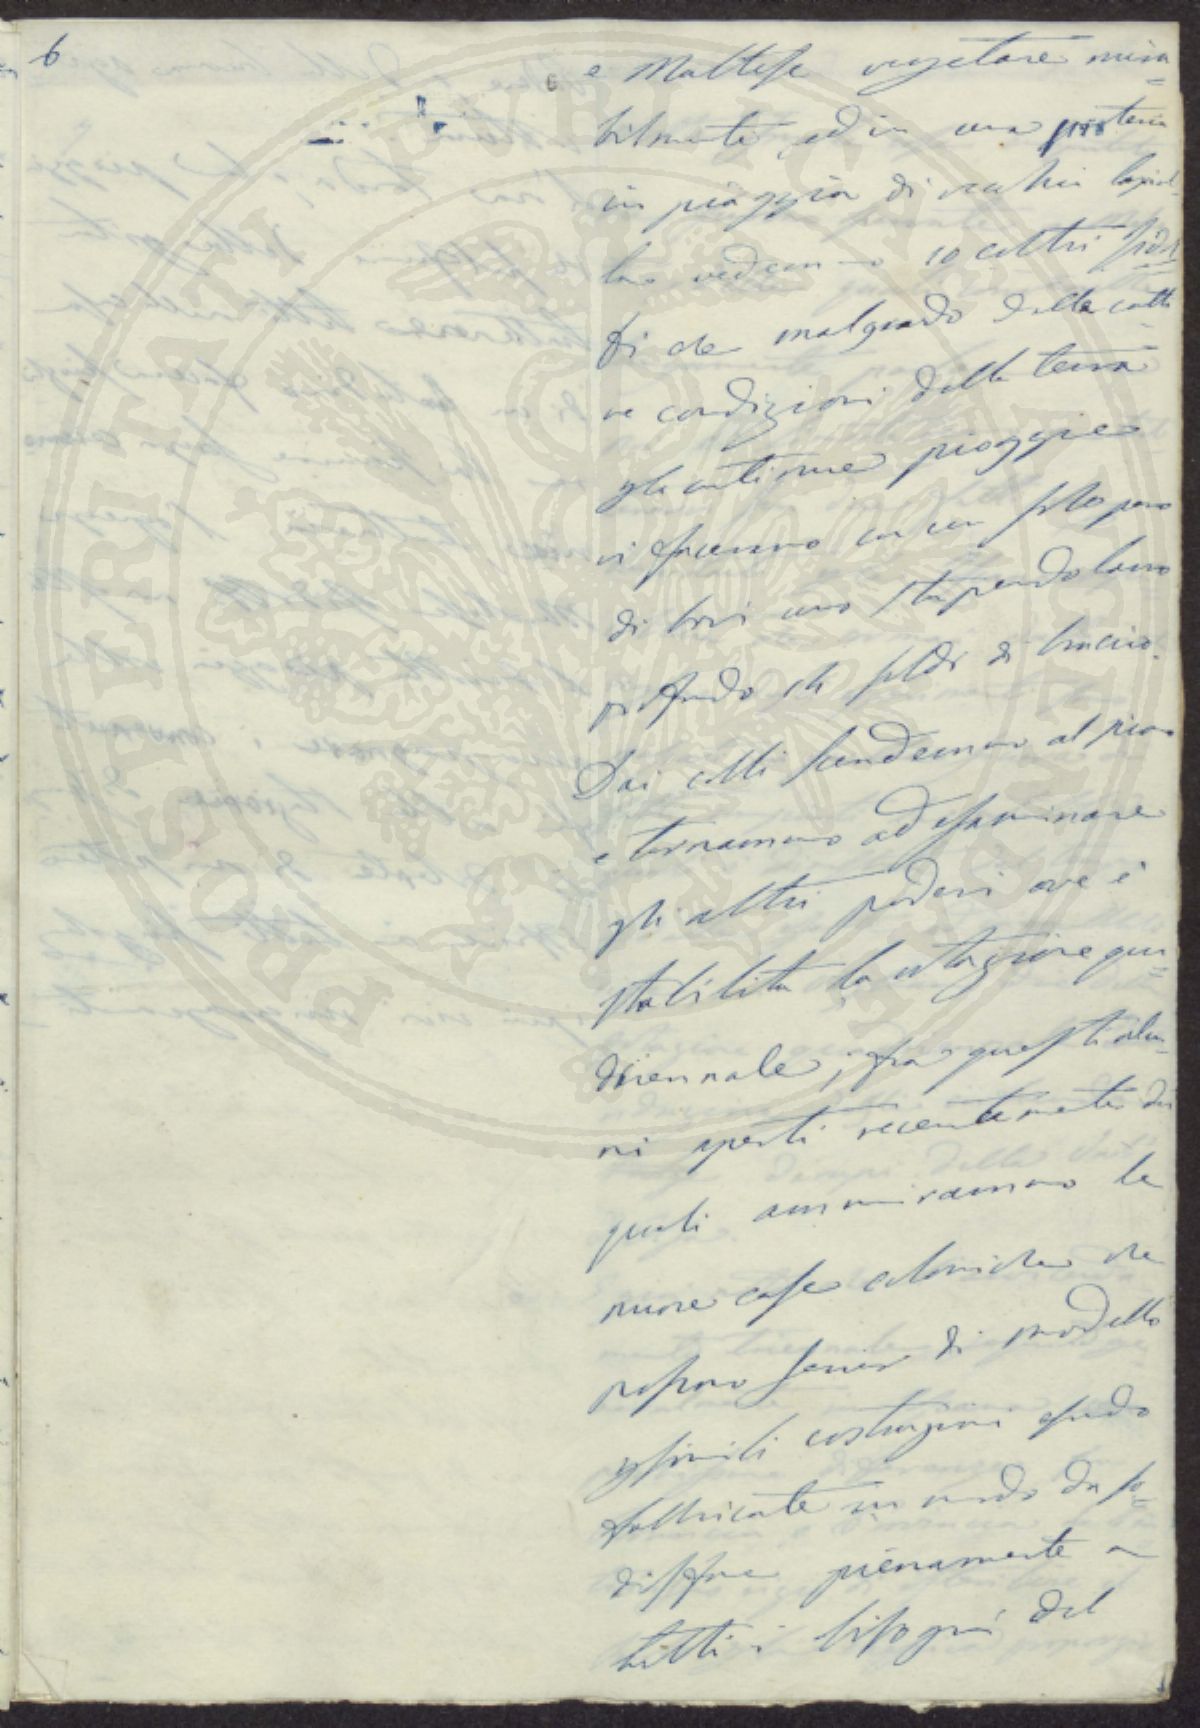 6
e Maltese vegetare mira=
bilmente, ed in una prateria
in piaggia di vecchio
vedemmo 10 coltri
di che malgrado delle catti=
ve condizioni della terra
continue pioggie
vi facevano con un solo paro
di bovi uno stupendo lavoro
profondo di
Dai colli scendemmo al piano
e tornammo ad esaminare
gli altri poderi ove è
stabilita la rotazione qua=
driennale; fra questi alcu=
ni aperti recentemente dei
quali ammirammo le
nuove case coloniche che
possono servir di modello
p simili costruzioni essendo
fabbricate in modo da so=
disfare pienamente a
tutti i bisogni del
PERITI AGR